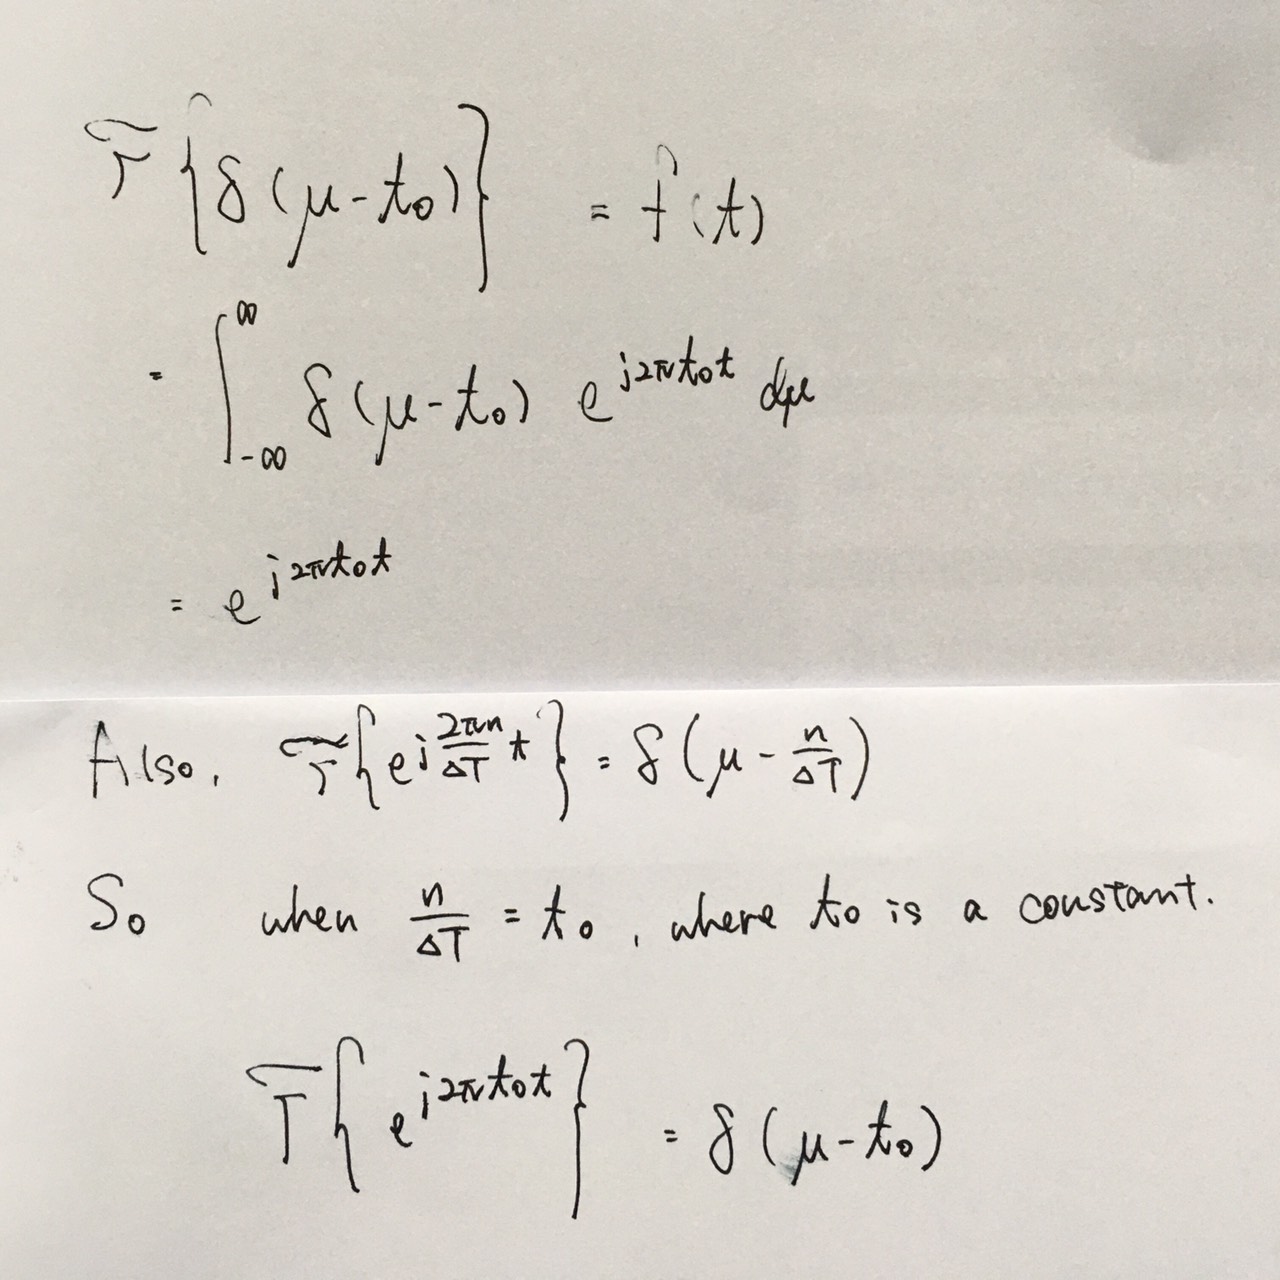 ℱ{δ(μ-t₀)} = f(t)
= ∫_{-∞}^{∞} δ(μ-t₀) e^{j2πt₀t} dμ
= e^{j2πt₀t}
Also, ℱ{e^{j\frac{2πn}{ΔT}t}} = δ(μ - \frac{n}{ΔT})
So when \frac{n}{ΔT} = t₀, where t₀ is a constant.
ℱ{e^{j2πt₀t}} = δ(μ-t₀)